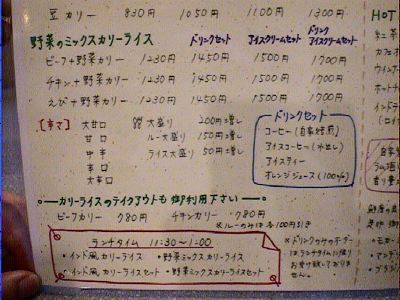 豆カリー 830円 1050円 1100円 1300円
野菜のミックスカリーライス
ドリンクセット アイスクリームセット ドリンクアイスクリームセット
ビーフ+野菜カリー 1230円 1450円 1500円 1700円
チキン+野菜カリー 1230円 1450円 1500円 1700円
えび+野菜カリー 1230円 1450円 1500円 1700円
大甘口
甘口
中辛
辛口
大辛口
大盛り 200円増し
ルー大盛り 150円増し
ライス大盛り 50円増し
ドリンクセット
コーヒー(自家焙煎)
アイスコーヒー(水出し)
アイスティー
オレンジジュース(100%)
カリーライスのテイクアウトも御利用下さい
ビーフカリー 780円 チキンカリー 780円
※ルーのみは各100円引き
ランチタイム 11:30~1:00
・インド風カリーライス ・野菜ミックスカリーライス
・インド風カリーライスセット ・野菜ミックスカリーライスセット
※ドリンクのみのオーダー
はランチタイムに限り
お受け致しておりま
せん。
HOT
紅茶
カフェオ
ウイン
ホット